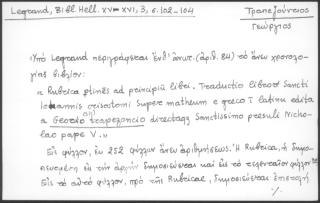 Legrand, Bibl. Hell. XV–XVI, 3, σ. 102-104
Τραπεζούντιος
Γεώργιος
Ὑπὸ Legrand περιγράφεται ἐνθ' ἀνωτ. (ἀριθ. 84) τὸ ἄνευ χρονολο-
γίας βιβλίον:
« Rubrica ptinēs ad principiū libri. Traductio libroꝝ Sancti
Ioannis crisostomi super matheum e greco ī latinū edita
a Georgio trapezoncio directaqꝫ Sanctissimo presuli Nicho-
lao pape V. »
Εἰς φύλλον, ἐκ 252 φύλλων ἄνευ ἀριθμήσεως. Ἡ Rubrica, ἡ δημο-
σιευμένη ἐν τῇ ἀρχῇ δημοσιεύεται καὶ εἰς τὸ τελευταῖον φύλλον
Εἰς τὸ αὐτὸ φύλλον, πρὸ τῆς Rubricae, δημοσιεύεται ἐπιστολὴ
·/.